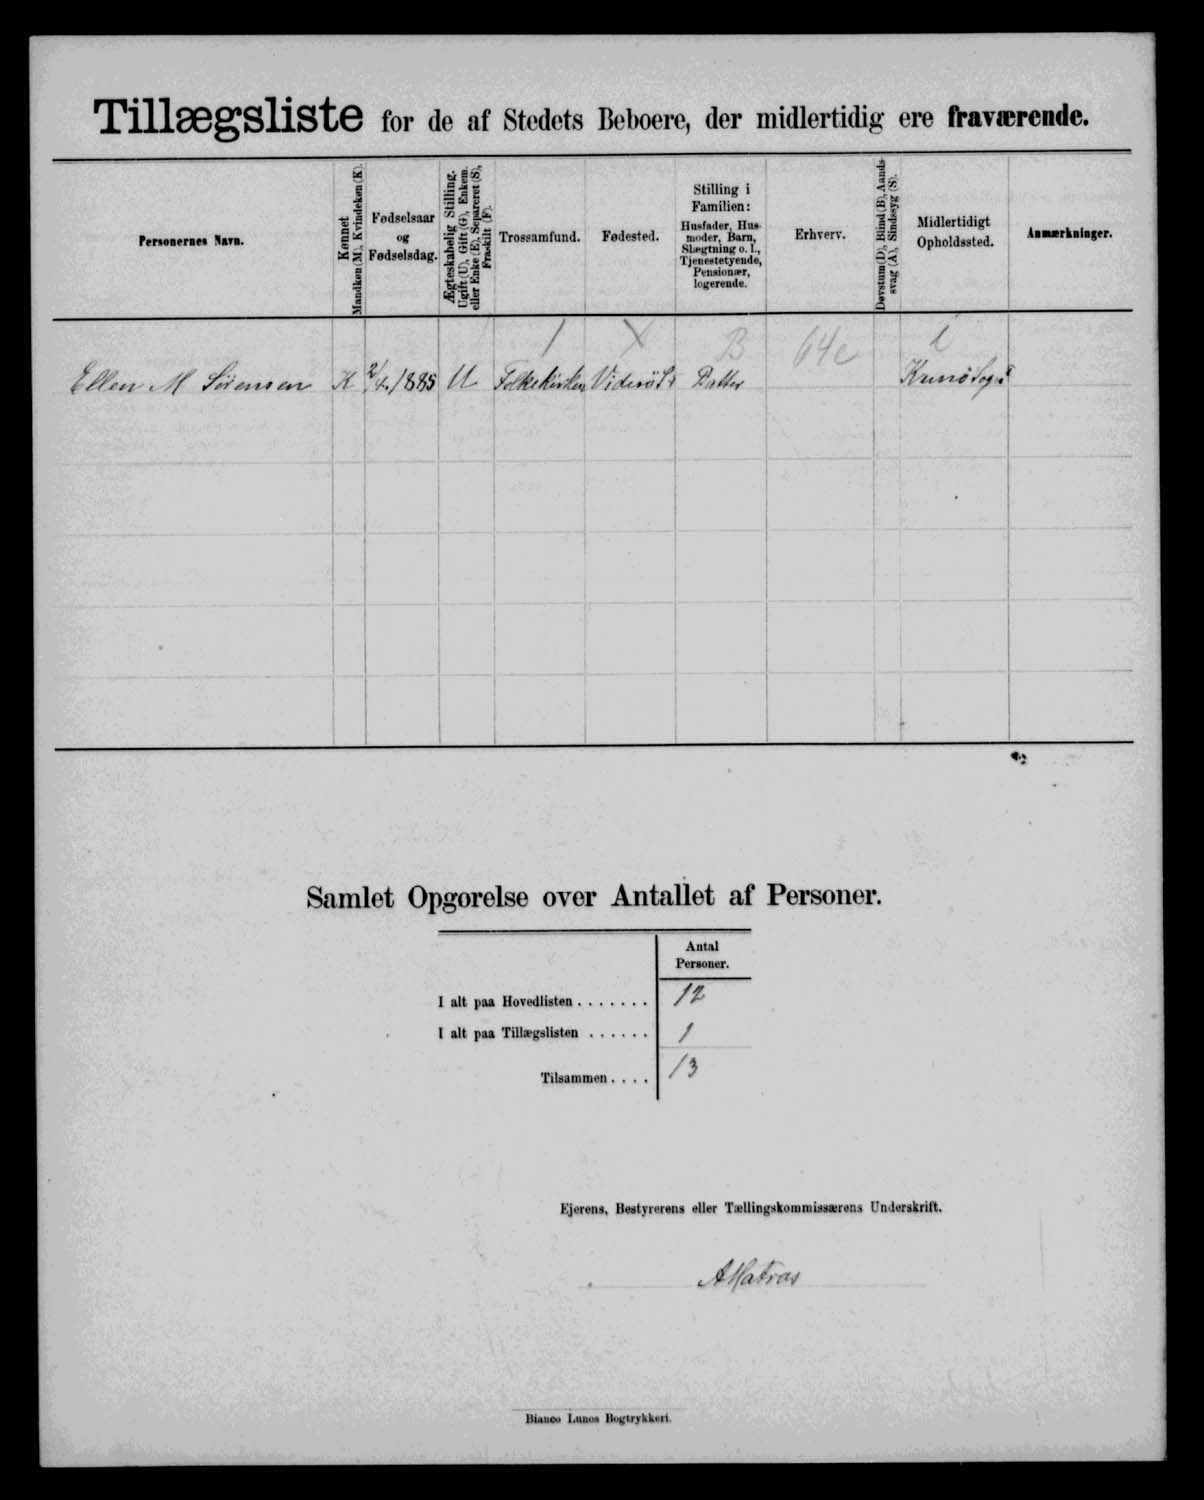 Tillægsliste for de af Stedets Beboere, der midlertidig ere fraværende.
Personernes Navn.
Kønnet
Mandkøn (M), Kvindekøn (K).
Fødselsaar
og
Fødselsdag.
Ægteskabelig Stilling.
Ugift (U), Gift (G), Enkem.
eller Enke (E), Separeret (S),
Fraskilt (F).
Trossamfund.
Fødested.
Stilling i
Familien:
Husfader, Hus-
moder, Barn,
Slægtning o. l.,
Tjenestetyende,
Pensionær,
logerende.
Erhverv.
Døvstum (D), Blind (B), Aands-
svag (A), Sindssyg (S).
Midlertidigt
Opholdssted.
Anmærkninger.
1 X B 64c i
Ellen M Sörensen K 2/4 1885 U Folkekirken Viderö Datter Kunö Sogn
Samlet Opgørelse over Antallet af Personer.
Antal
Personer.
I alt paa Hovedlisten . . . . . . . 12
I alt paa Tillægslisten . . . . . . 1
Tilsammen . . . . 13
Ejerens, Bestyrerens eller Tællingskommissærens Underskrift.
AMatras
Bianco Lunos Bogtrykkeri.